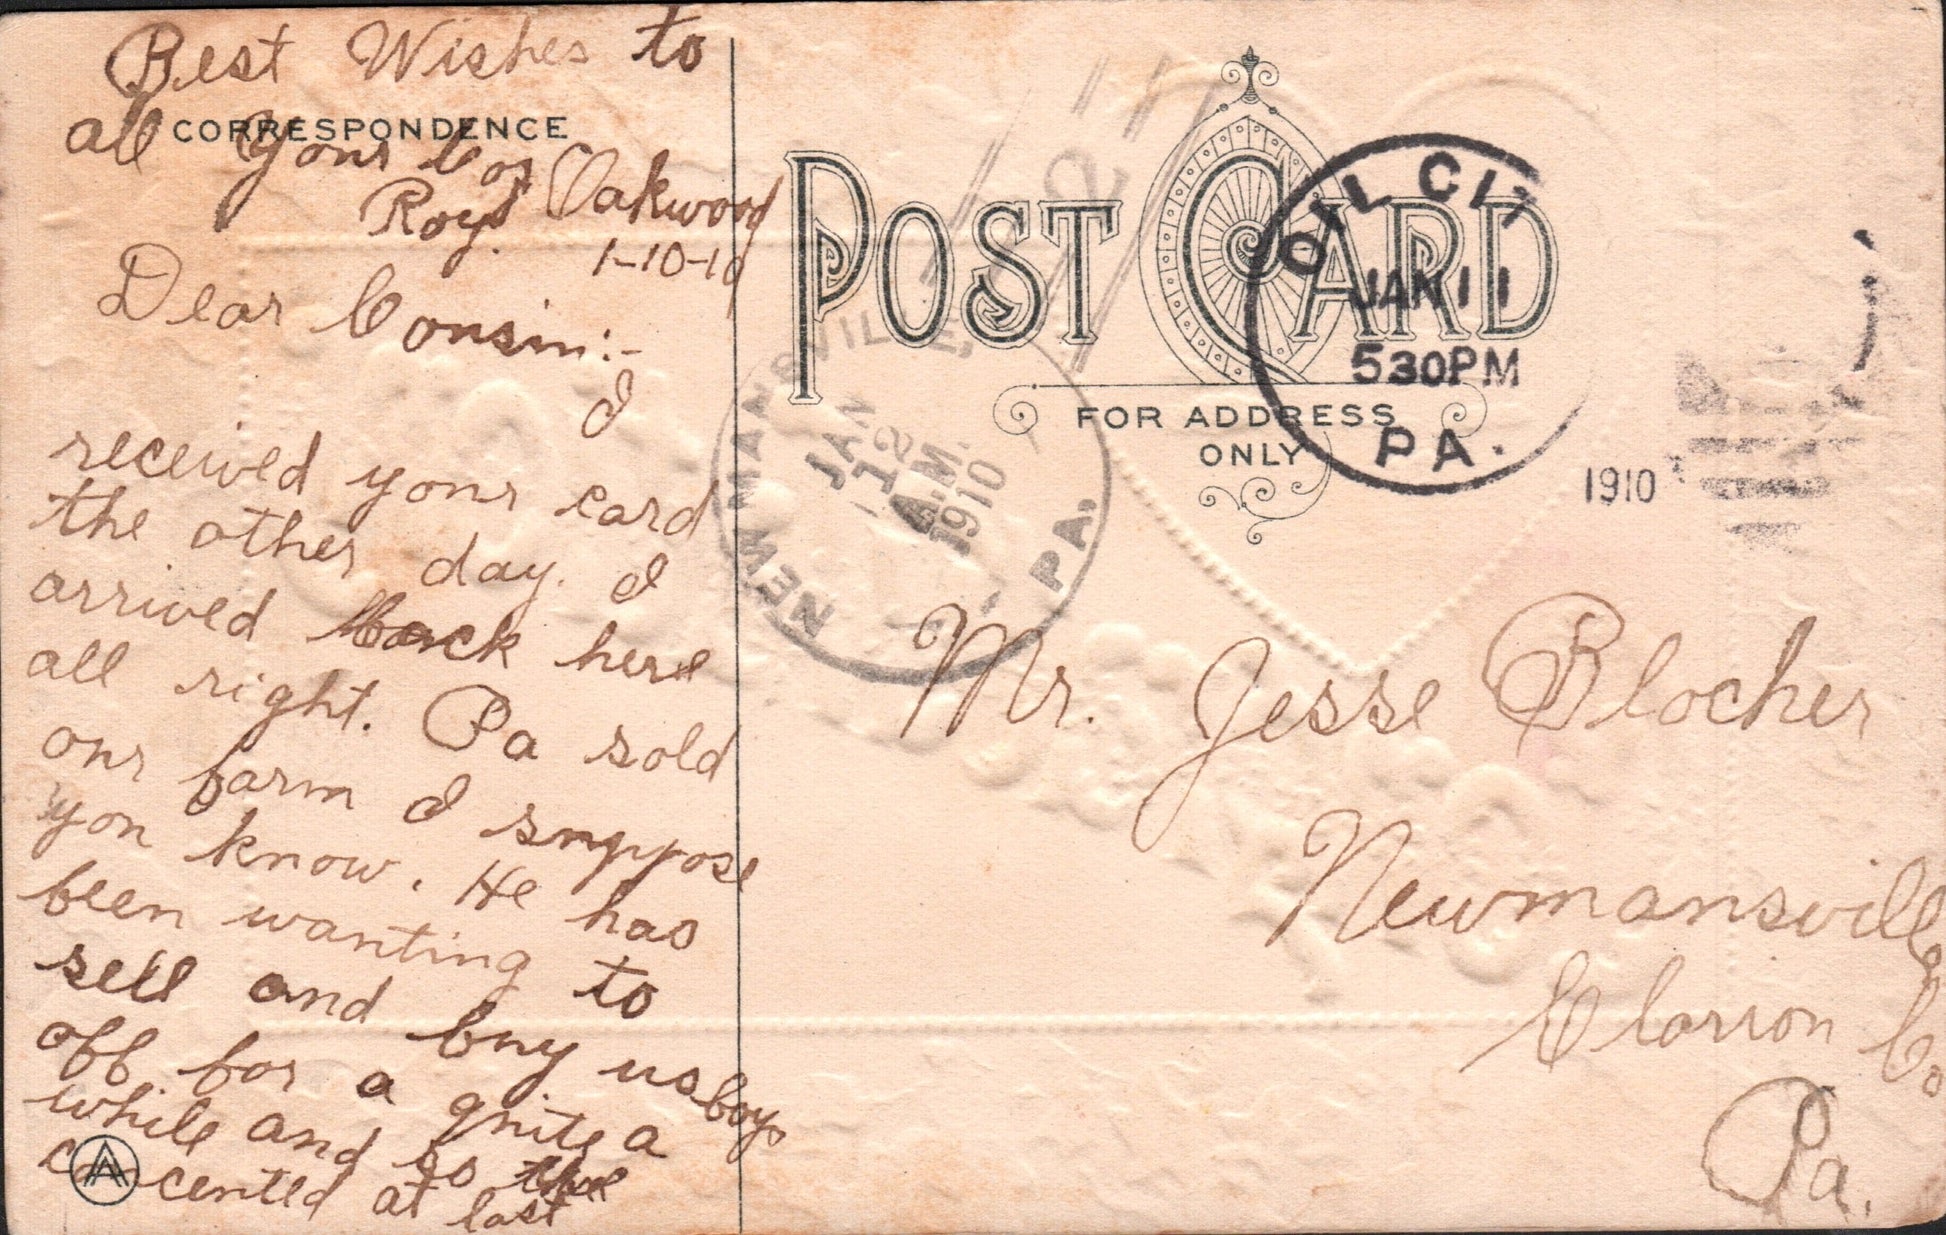 Best Wishes to
all your Cos
Roy.
CORRESPONDENCE
Oakwood
1-10-10
Dear Cousin:-
I
received your card
the other day. I
arrived back here
all right. Pa sold
our farm I suppose
you know. He has
been wanting to
sell and buy us boys
off for a quite a
while and so
concented at last
POST CARD
FOR ADDRESS
ONLY
OIL CITY
JAN 11
530PM
PA.
1910
NEWMANSVILLE,
JAN
12
A.M.
1910
PA.
Mr. Jesse Blocher
Newmansville
Clarion Co
Pa.